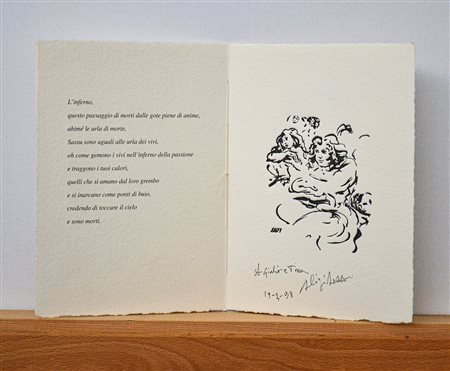 L'inferno,
questo paesaggio di morti dalle gote piene di anime,
ahimé le urla di morte,
Sassu sono uguali alle urla dei vivi,
oh come gemono i vivi nell'inferno della passione
e traggono i tuoi calori,
quelli che si amano dal loro grembo
e si inarcano come ponti di buio,
credendo di toccare il cielo
e sono morti.
A Giulio e